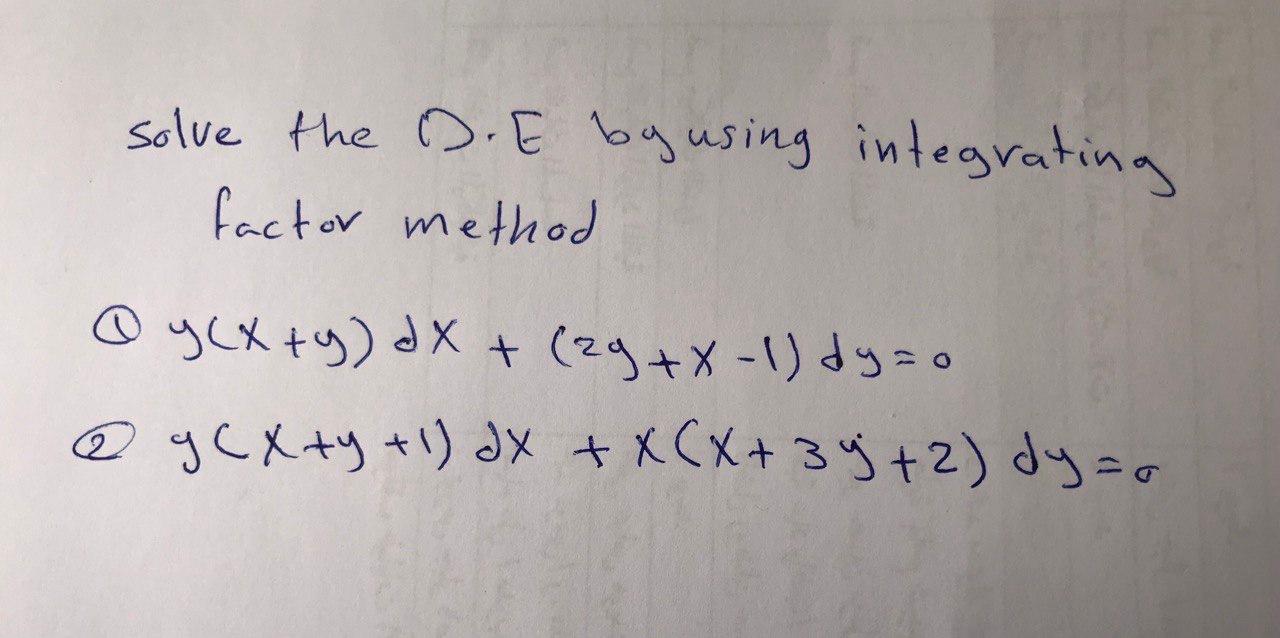 solve the D.E by using integrating
factor method
① y(x+y) dx + (2y+x-1) dy=0
② y(x+y+1) dx + x(x+3y+2) dy=0